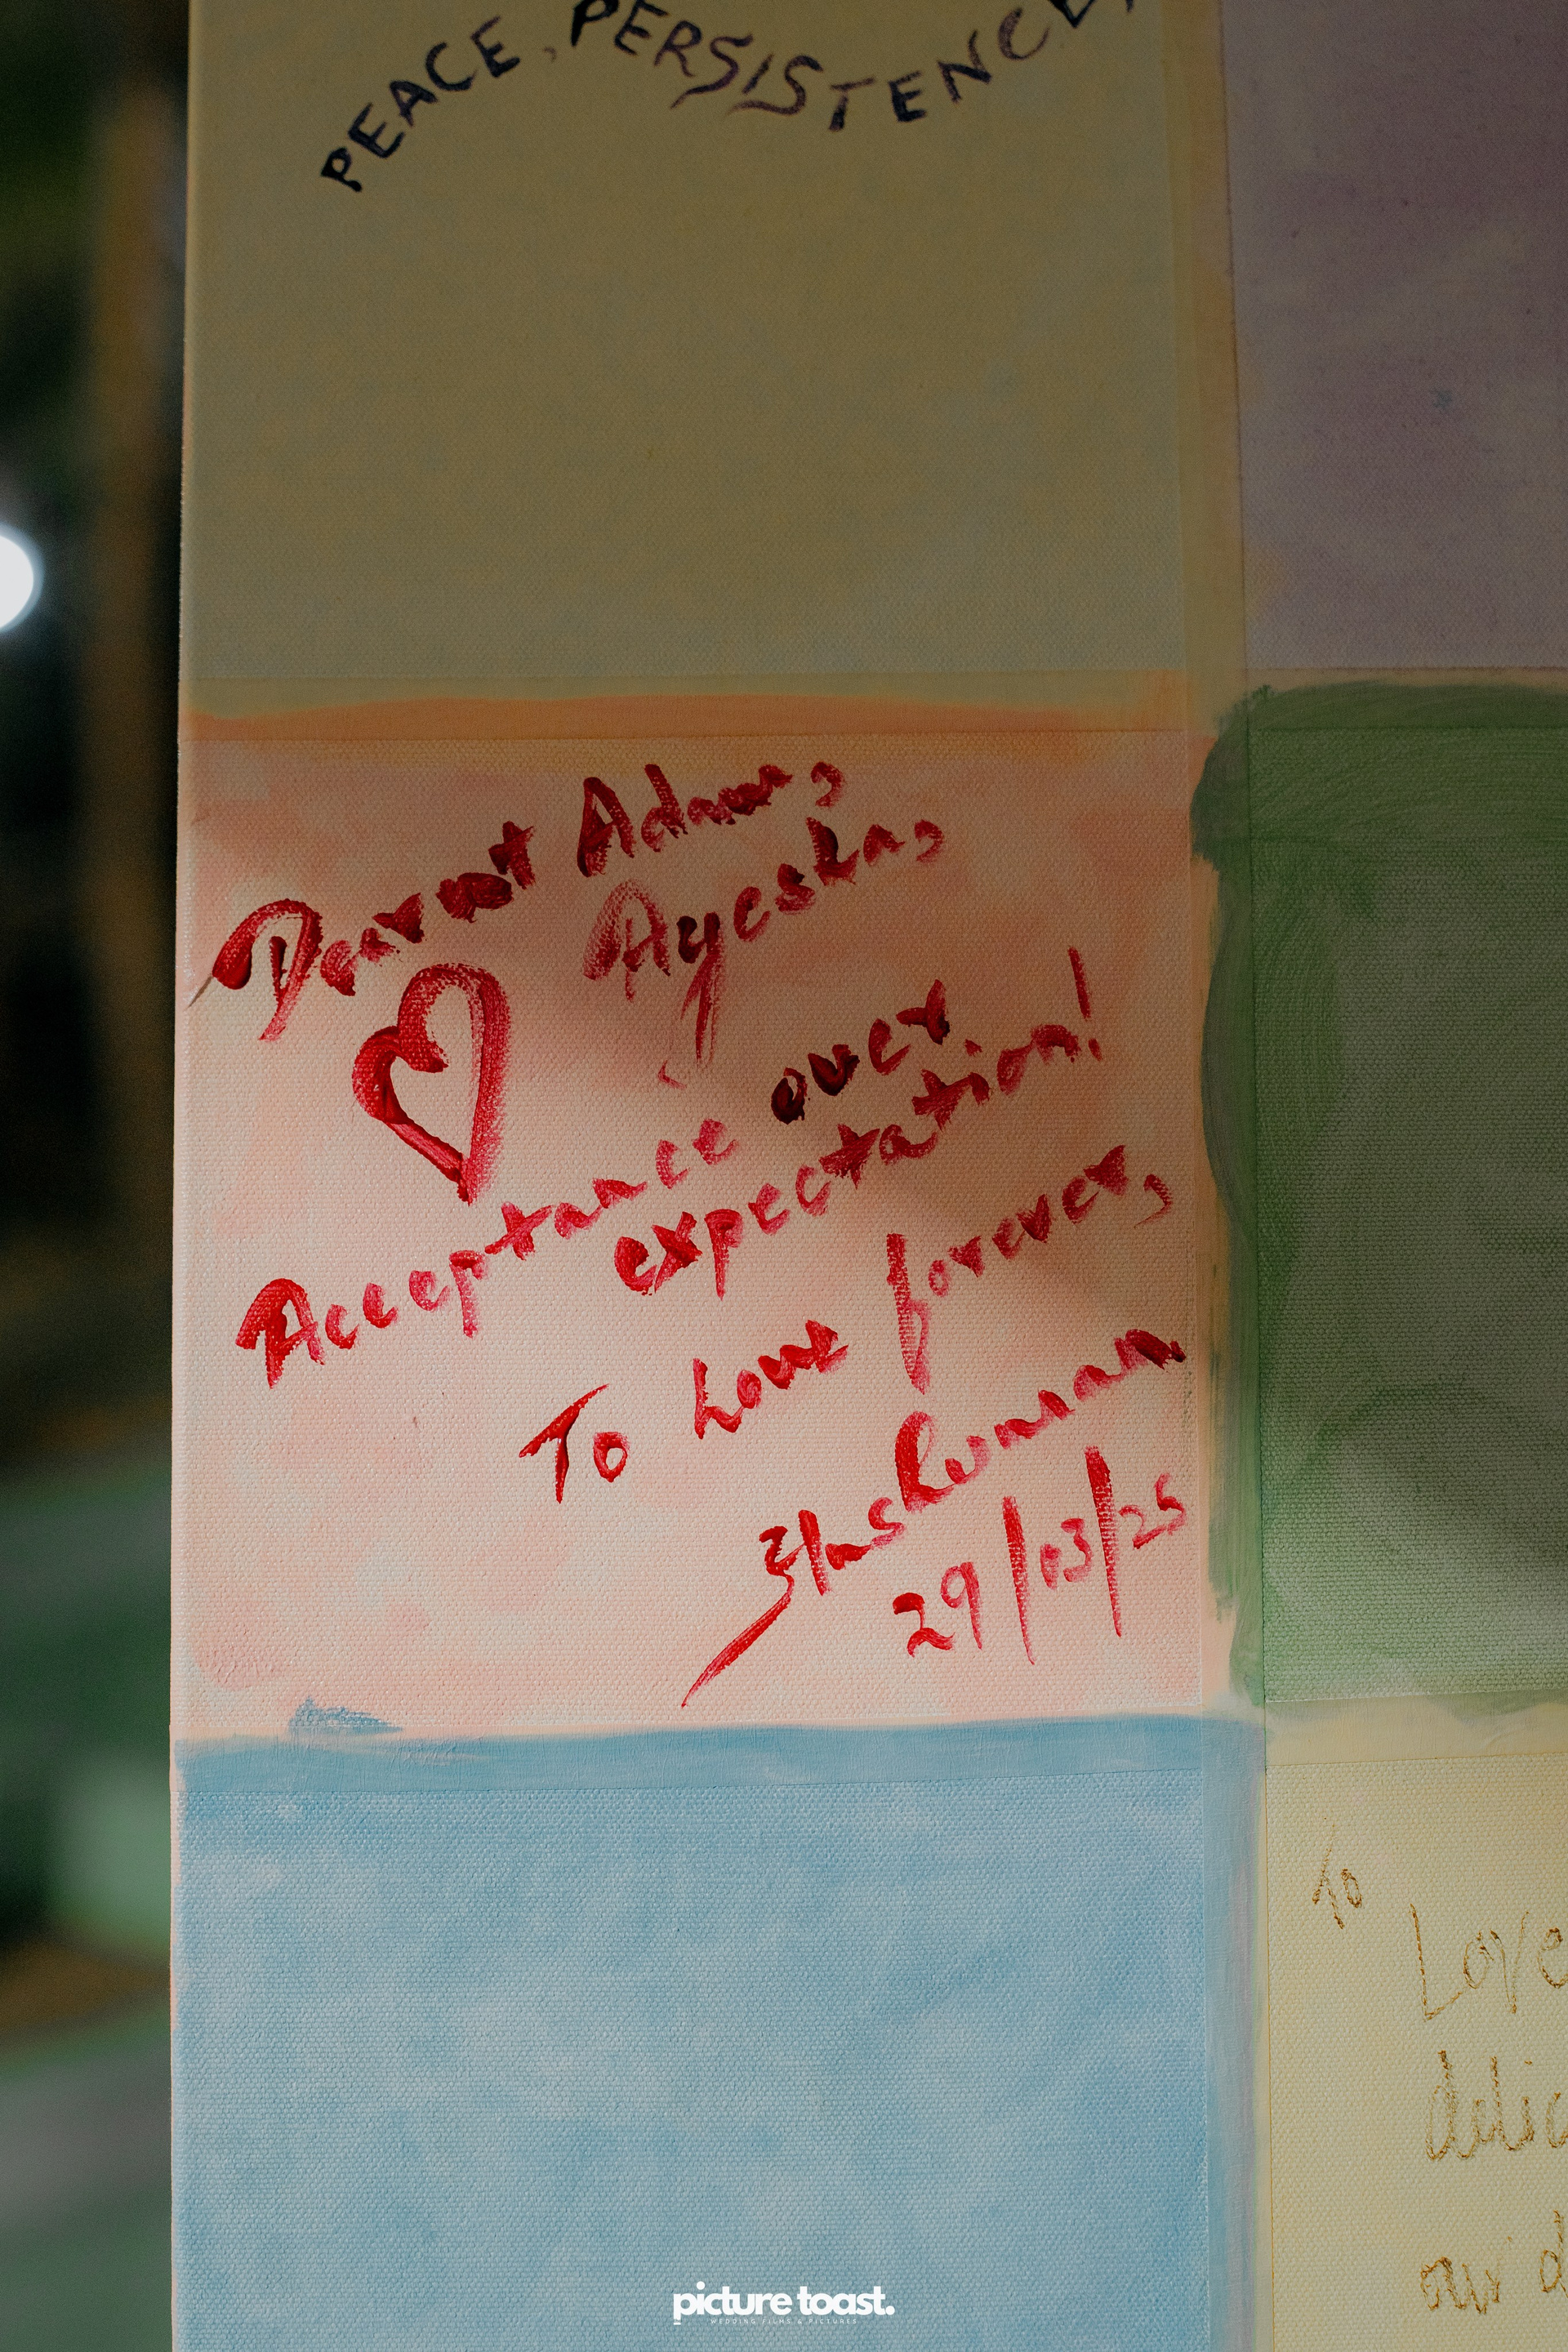 PEACE, PERSISTENCE,
Dearest Adam,
Ayesha,
Acceptance over
expectation!
To Love forever,
29/03/25
To
Love
picture toast.
WEDDING FILMS & PICTURES